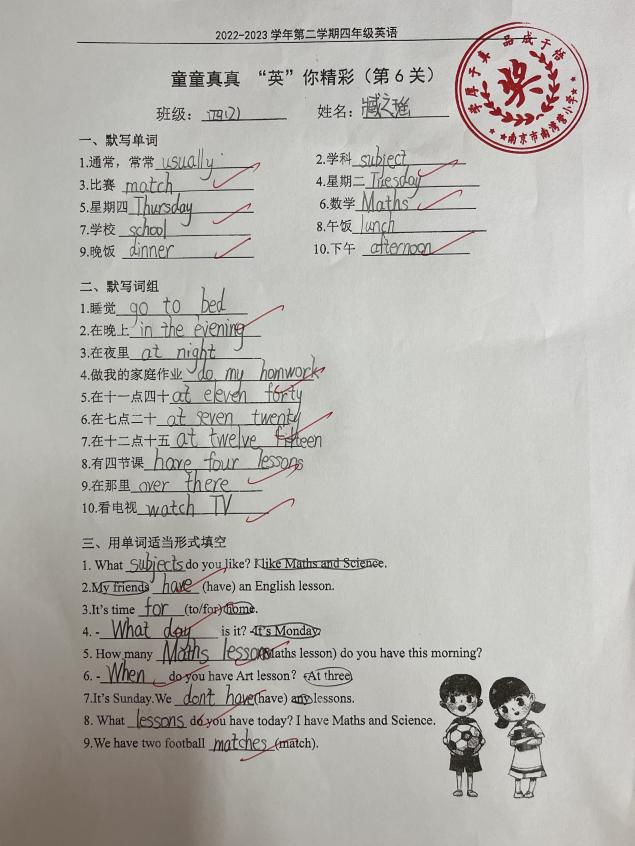 2022-2023 学年第二学期四年级英语
童童真真 “英”你精彩（第 6 关）
班级： 四(2) 姓名：
南京市南湾营小学
一、默写单词
1.通常，常常 usually 2.学科 subject
3.比赛 match 4.星期二 Tuesday
5.星期四 Thursday 6.数学 Maths
7.学校 school 8.午饭 lunch
9.晚饭 dinner 10.下午 afternoon
二、默写词组
1.睡觉 go to bed
2.在晚上 in the evening
3.在夜里 at night
4.做我的家庭作业 do my homwork
5.在十一点四十 at eleven forty
6.在七点二十 at seven twenty
7.在十二点十五 at twelve fifteen
8.有四节课 have four lessons
9.在那里 over there
10.看电视 watch TV
三、用单词适当形式填空
1. What subjects do you like? I like Maths and Science.
2.My friends have (have) an English lesson.
3.It's time for (to/for) home.
4. - What day is it? -It's Monday.
5. How many Maths lessons (Maths lesson) do you have this morning?
6. - When do you have Art lesson? -At three.
7.It's Sunday.We don't have (have) any lessons.
8. What lessons do you have today? I have Maths and Science.
9.We have two football matches (match).